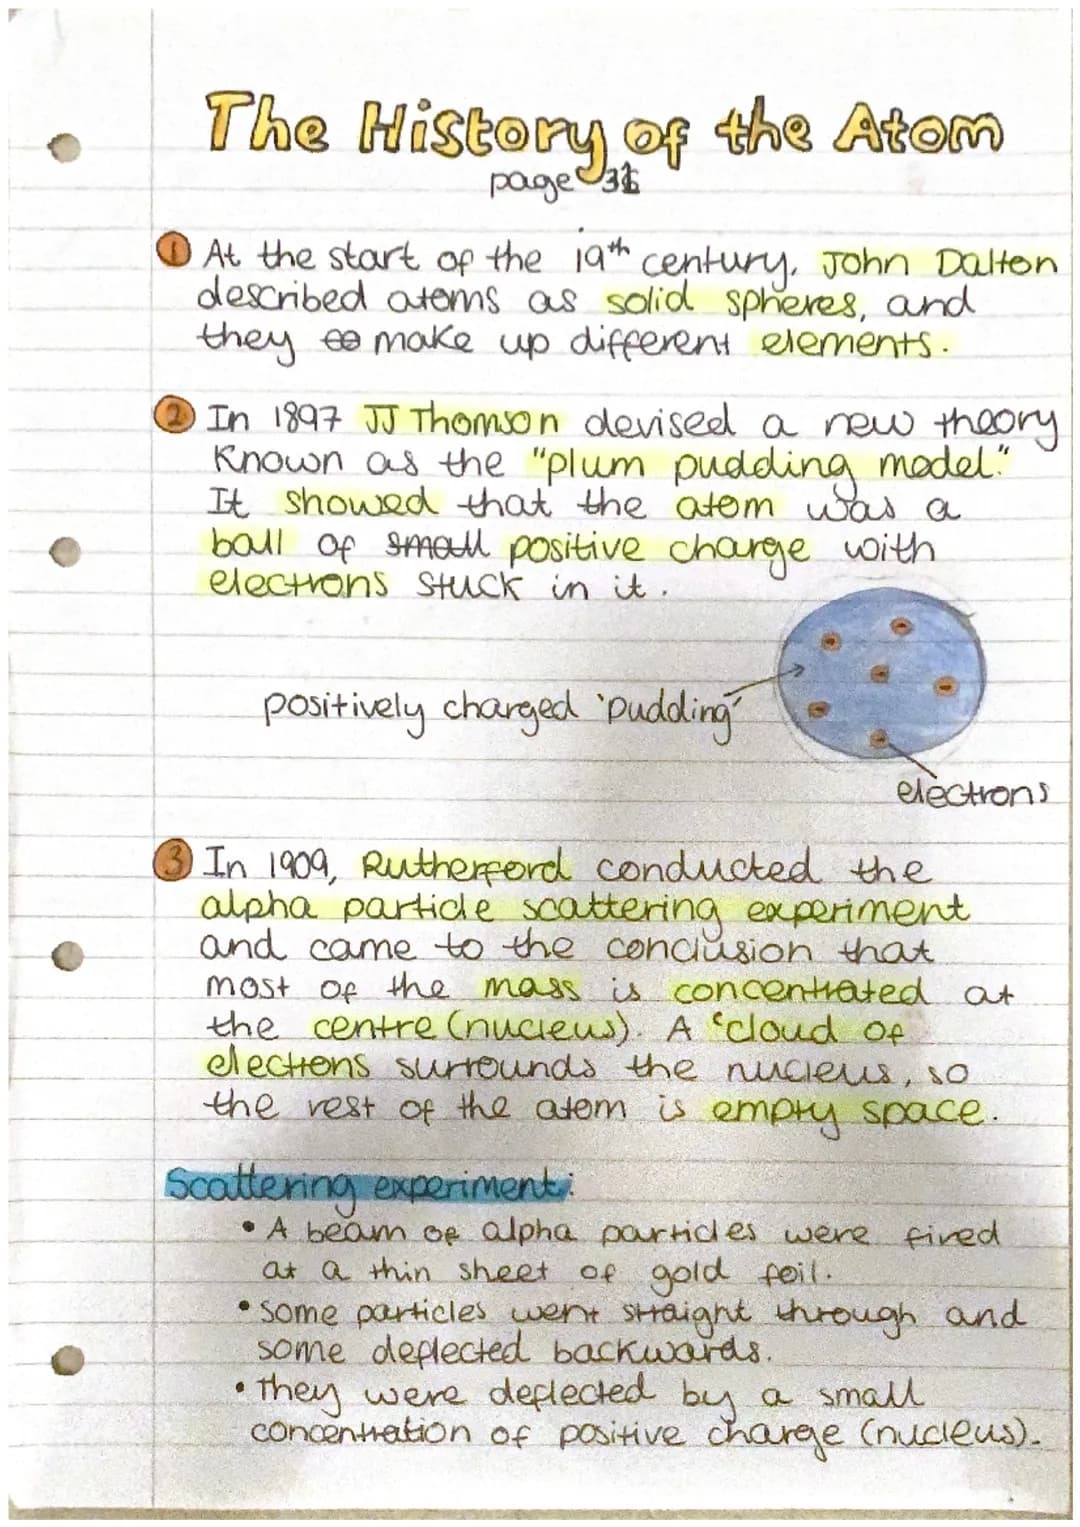 The History of the Atom
page
① At the start of the 19th century, John Dalton
described atoms as solid spheres, and
they make up different elements.
② In 1897 JJ Thomson devised a new theory
known as the "plum pudding model."
It showed that the atom was a
ball of small positive charge with
electrons stuck in it.
positively charged 'pudding'
electrons
③ In 1909, Rutherford conducted the
alpha particle scattering experiment
and came to the conclusion that
most of the mass is concentrated at
the centre (nucleus). A 'cloud of
electrons surrounds the nucleus, so
the rest of the atom is empty space.
Scattering experiment:
• A beam of alpha particles were fired
at a thin sheet of gold foil.
• Some particles went straight through and
some deflected backwards.
• They were deflected by a small
concentration of positive charge (nucleus).